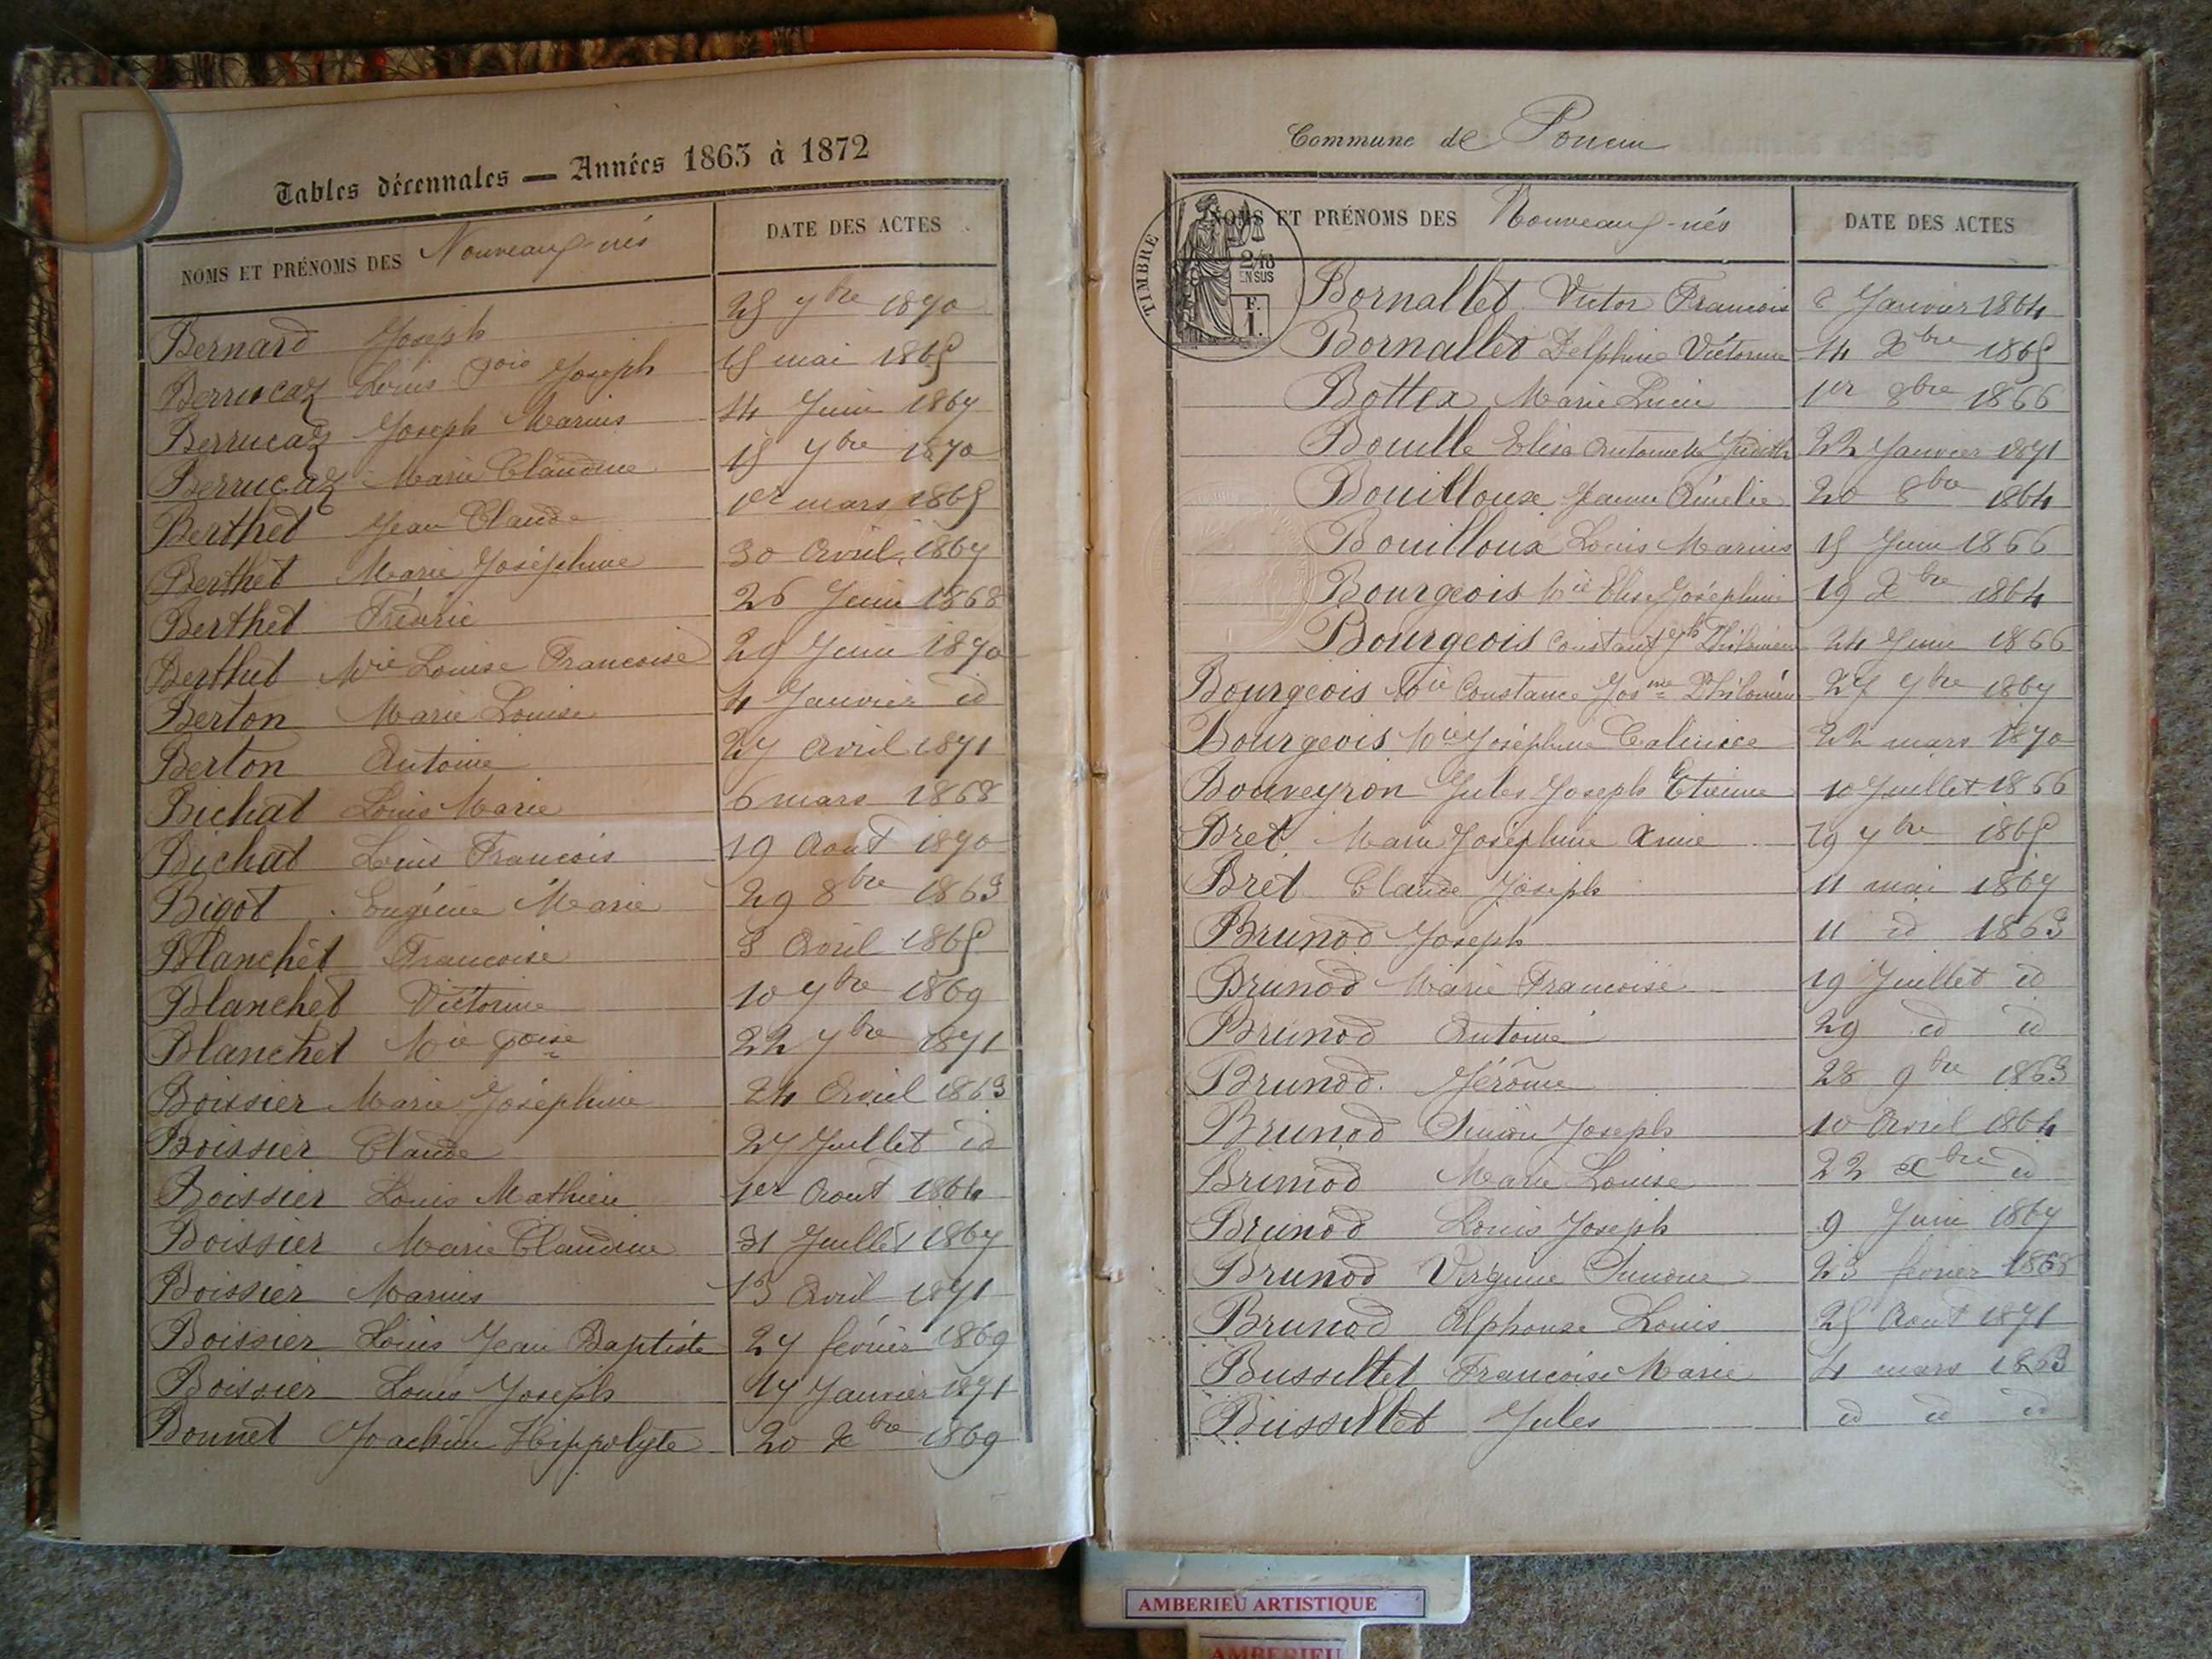 Tables décennales — Années 1863 à 1872
NOMS ET PRÉNOMS DES Nouveaux-nés DATE DES ACTES
Bernard Joseph 25 7bre 1870
Berrucaz Louis Fois Joseph 15 mai 1865
Berrucaz Joseph Marius 14 Juin 1867
Berrucaz Marie Claudine 15 7bre 1870
Berthet Jean Claude 1er mars 1865
Berthet Marie Joséphine 30 Avril 1867
Berthet Frédéric 26 Juin 1868
Berthet Mie Louise Francoise 29 Juin 1870
Berton Marie Louise 4 Janvier id
Berton Antoine 27 Avril 1871
Bichat Louis Marie 6 mars 1868
Bichat Louis Francois 19 Aout 1870
Bigot Eugénie Marie 29 8bre 1863
Blanchet Francoise 3 Avril 1865
Blanchet Victorine 10 7bre 1869
Blanchet Mie Foise 22 7bre 1871
Boissier Marie Joséphine 24 Avril 1863
Boissier Claude 27 Juillet id
Boissier Louis Mathieu 1er Aout 1864
Boissier Marie Claudine 31 Juillet 1867
Boissier Marius 13 Avril 1871
Boissier Louis Jean Baptiste 27 février 1869
Boissier Louis Joseph 17 Janvier 1871
Bonnet Joachim Hippolyte 20 Xbre 1869
Commune de Poncin
NOMS ET PRÉNOMS DES Nouveaux-nés DATE DES ACTES
TIMBRE
2/10
EN SUS
F.
1.
Bornallet Victor Francois 6 Janvier 1864
Bornallet Delphine Victorine 14 Xbre 1865
Bottex Marie Lucie 1er 8bre 1866
Bouille Elisa Antoinette Judith 22 Janvier 1871
Bouilloux Jeanne Amélie 20 8bre 1864
Bouilloux Louis Marius 15 Juin 1866
Bourgeois Mie Elise Joséphine 19 Xbre 1864
Bourgeois Constant Jph Philomien 24 Juin 1866
Bourgeois Mie Constance Josme Philomène 25 7bre 1867
Bourgeois Mie Joséphine Calinice 22 mars 1870
Bouveyron Jules Joseph Etienne 10 Juillet 1866
Bret Marie Joséphine Annie 29 7bre 1865
Bret Claude Joseph 11 mai 1867
Brunod Joseph 11 id 1863
Brunod Marie Francoise 19 Juillet id
Brunod Antoine 29 id id
Brunod Jérôme 28 9bre 1863
Brunod Simon Joseph 10 Avril 1864
Brunod Marie Louise 22 Xbre id
Brunod Louis Joseph 9 Juin 1867
Brunod Virginie Simone 23 février 1868
Brunod Alphonse Louis 25 Aout 1871
Bussillet Francoise Marie 4 mars 1863
Bussillet Jules id id id
AMBERIEU ARTISTIQUE
AMBERIEU